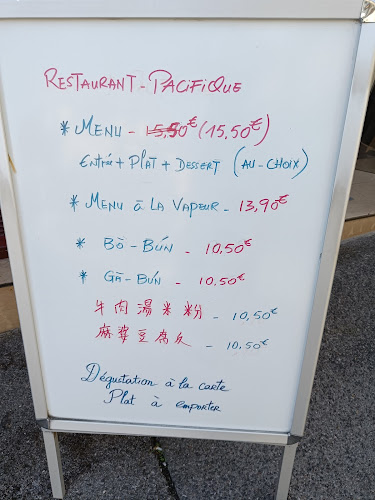 RESTAURANT - PACIFIQUE
* MENU - 15,50€ (15,50€)
Entrée + Plat + Dessert (AU-CHOIX)
* MENU à LA VAPEUR - 13,90€
* BÒ - BÚN - 10,50€
* GÀ - BÚN - 10,50€
牛肉湯米粉 - 10,50€
麻婆豆腐飯 - 10,50€
Dégustation à la carte
Plat à emporter